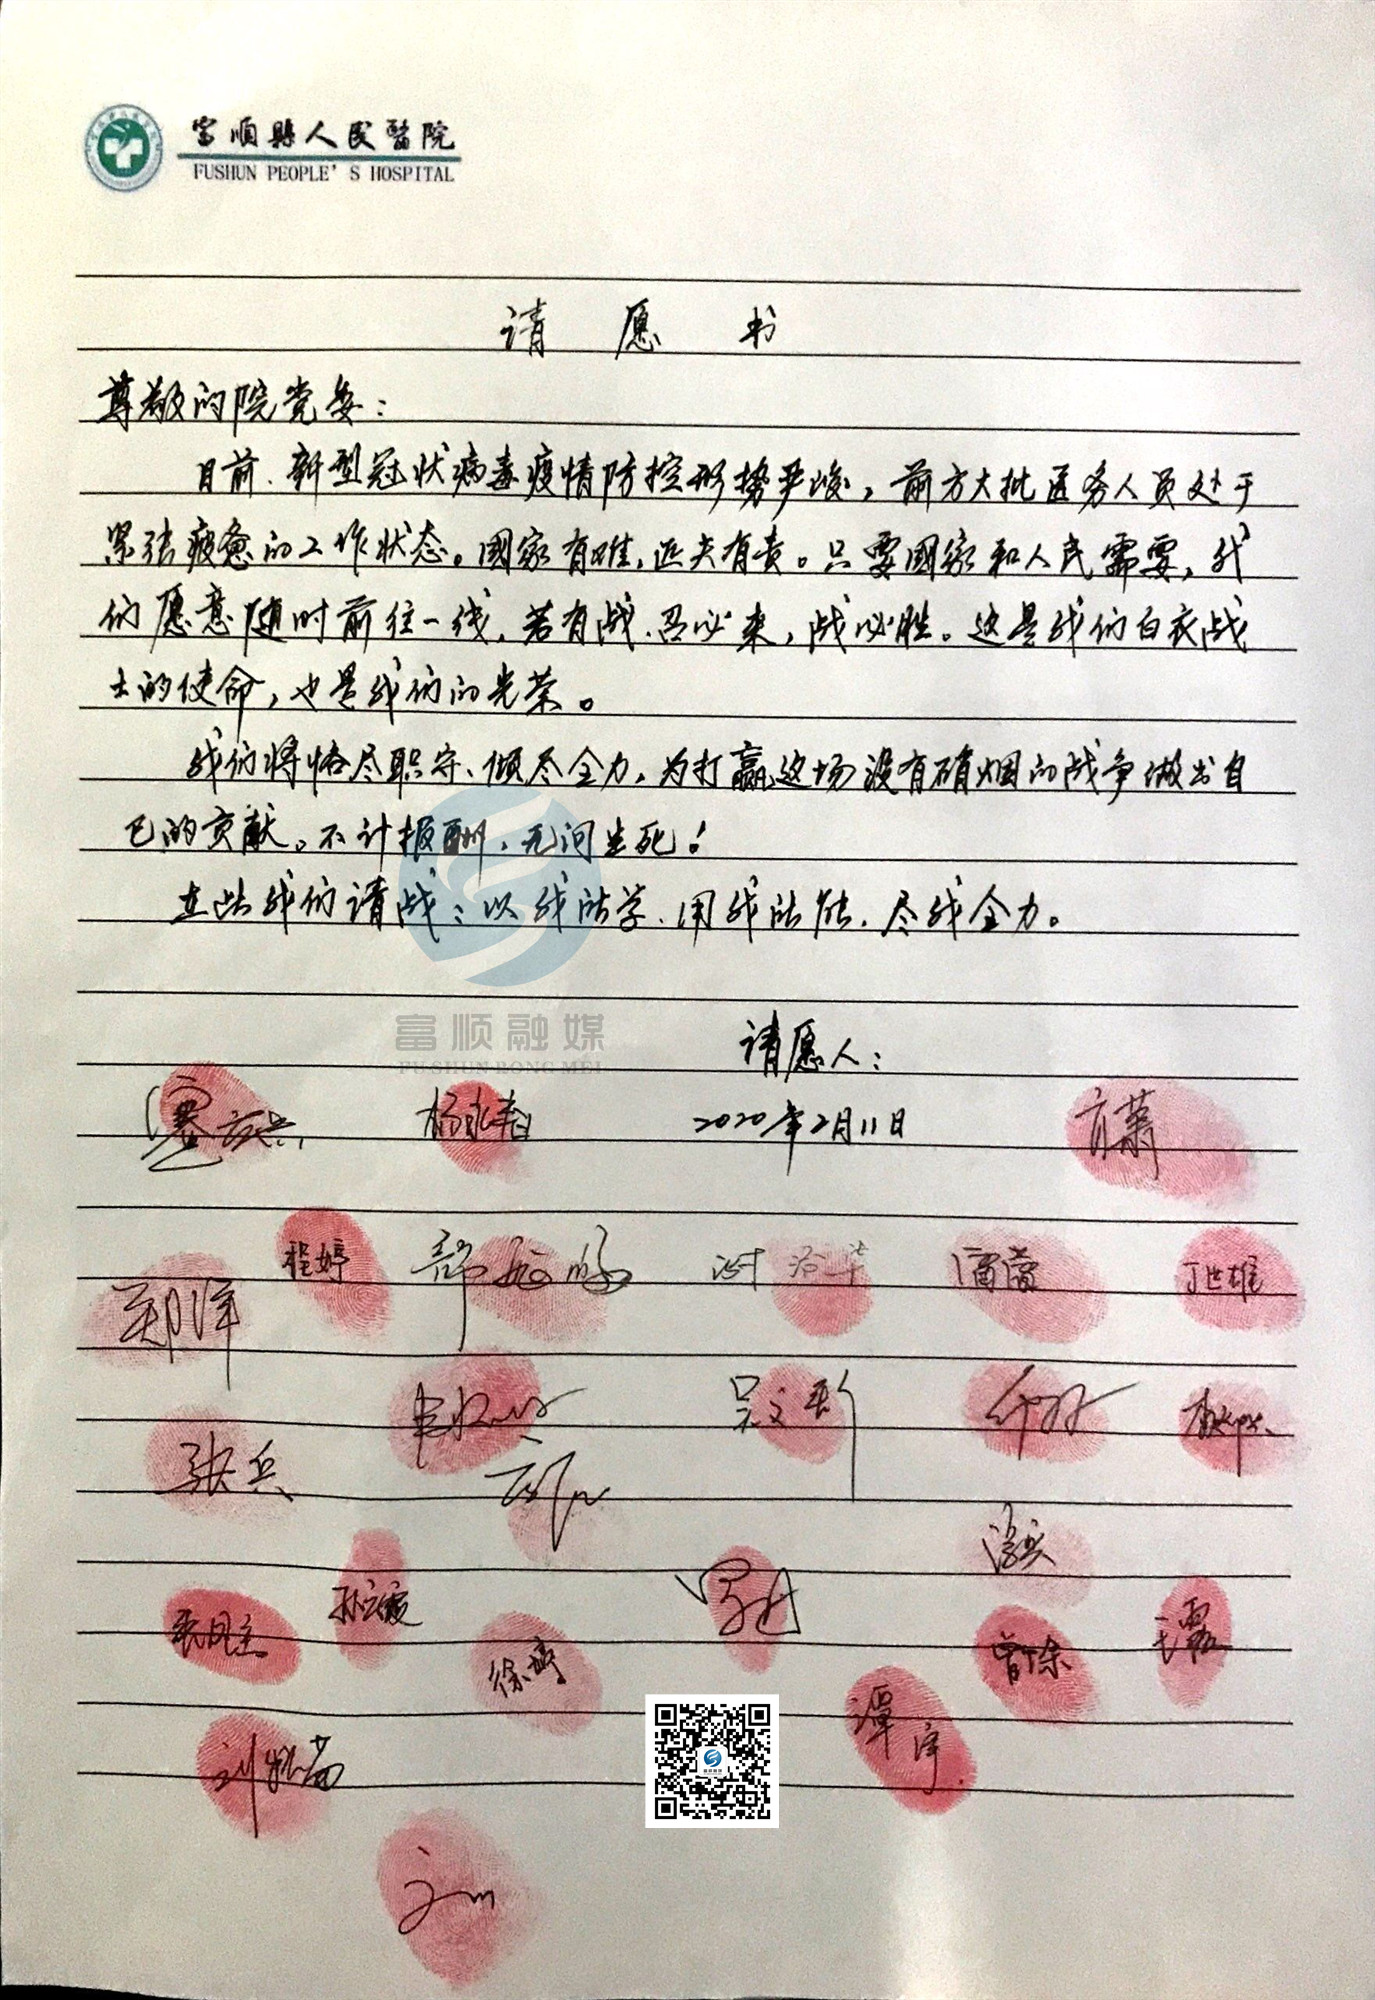 富順縣人民醫院
FUSHUN PEOPLE'S HOSPITAL
请愿书
尊敬的院党委：
目前、新型冠状病毒疫情防控形势严峻，前方大批医务人员处于
紧张疲惫的工作状态。國家有难，匹夫有责。只要國家和人民需要，我
们愿意随时前往一线，若有战、召必来，战必胜。这是我们白衣战
士的使命，也是我们的光荣。
我们将恪尽职守、倾尽全力，为打赢这场没有硝烟的战争做出自
己的贡献。不计报酬，无问生死！
在此我们请战：以我所学、用我所能、尽我全力。
富顺融媒
FU SHUN RONG MEI
请愿人：
杨永春 2020年2月11日
程婷 雷蕾 丁世雄
郑洋
吴文彬
张兵
孙云霞
徐婷 曾馀
谭宇